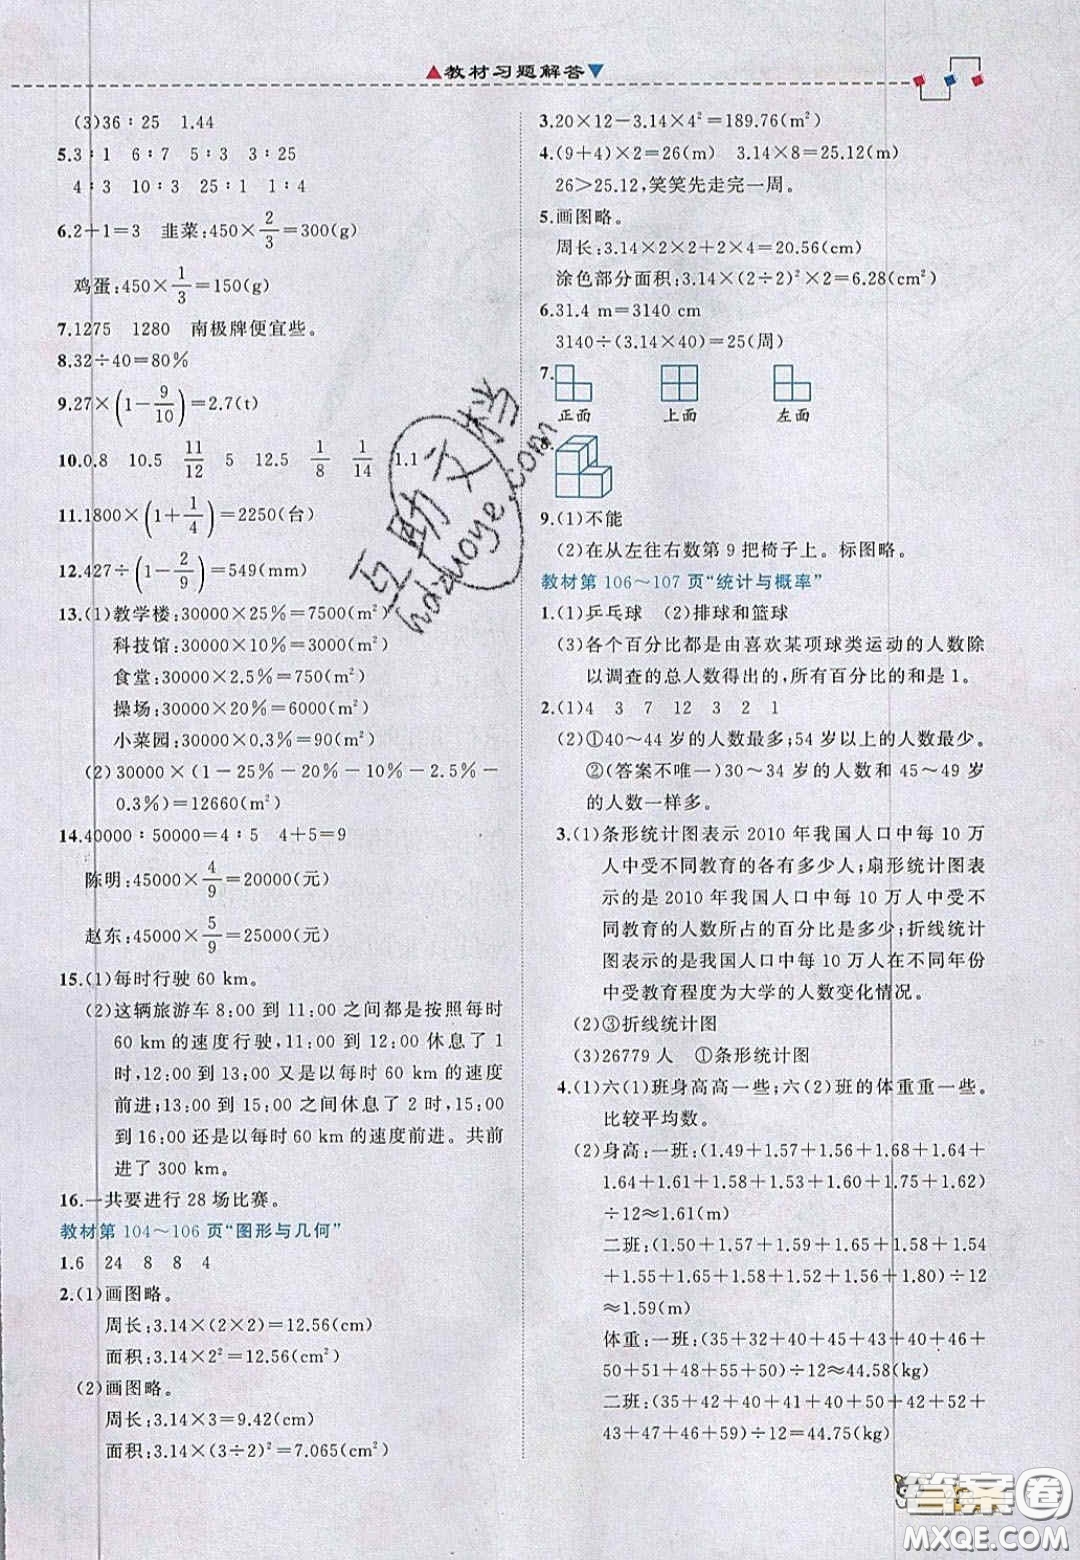 教材习题解答
(3)36∶25　1.44
5.3∶1　6∶7　5∶3　3∶25
4∶3　10∶3　25∶1　1∶4
6.2+1=3　韭菜:450×2/3=300(g)
鸡蛋:450×1/3=150(g)
7.1275　1280　南极牌便宜些。
8.32÷40=80%
9.27×(1-9/10)=2.7(t)
10.0.8　10.5　11/12　5　12.5　1/8　1/14　1.1
11.1800×(1+1/4)=2250(台)
12.427÷(1-2/9)=549(mm)
13.(1)教学楼:30000×25%=7500(m²)
科技馆:30000×10%=3000(m²)
食堂:30000×2.5%=750(m²)
操场:30000×20%=6000(m²)
小菜园:30000×0.3%=90(m²)
(2)30000×(1-25%-20%-10%-2.5%-
0.3%)=12660(m²)
14.40000∶50000=4∶5　4+5=9
陈明:45000×4/9=20000(元)
赵东:45000×5/9=25000(元)
15.(1)每时行驶 60 km。
(2)这辆旅游车 8:00 到 11:00 之间都是按照每时
60 km 的速度行驶,11:00 到 12:00 休息了 1
时,12:00 到 13:00 又是以每时 60 km 的速度
前进;13:00 到 15:00 之间休息了 2 时,15:00
到 16:00 还是以每时 60 km 的速度前进。共前
进了 300 km。
16.一共要进行 28 场比赛。
教材第 104～106 页“图形与几何”
1.6　24　8　8　4
2.(1)画图略。
周长:3.14×(2×2)=12.56(cm)
面积:3.14×2²=12.56(cm²)
(2)画图略。
周长:3.14×3=9.42(cm)
面积:3.14×(3÷2)²=7.065(cm²)
3.20×12-3.14×4²=189.76(m²)
4.(9+4)×2=26(m)　3.14×8=25.12(m)
26>25.12,笑笑先走完一周。
5.画图略。
周长:3.14×2×2+2×4=20.56(cm)
涂色部分面积:3.14×(2÷2)²×2=6.28(cm²)
6.31.4 m=3140 cm
3140÷(3.14×40)=25(周)
7.
正面　上面　左面
8.
9.(1)不能
(2)在从左往右数第 9 把椅子上。标图略。
教材第 106～107 页“统计与概率”
1.(1)乒乓球　(2)排球和篮球
(3)各个百分比都是由喜欢某项球类运动的人数除
以调查的总人数得出的,所有百分比的和是 1。
2.(1)4　3　7　12　3　2　1
(2)①40～44 岁的人数最多;54 岁以上的人数最少。
②(答案不唯一)30～34 岁的人数和 45～49 岁
的人数一样多。
3.(1)条形统计图表示 2010 年我国人口中每 10 万
人中受不同教育的各有多少人;扇形统计图表
示的是 2010 年我国人口中每 10 万人中受不
同教育的人数所占的百分比是多少;折线统计
图表示的是我国人口中每 10 万人在不同年份
中受教育程度为大学的人数变化情况。
(2)③折线统计图
(3)26779 人　①条形统计图
4.(1)六(1)班身高高一些;六(2)班的体重重一些。
比较平均数。
(2)身高:一班:(1.49+1.57+1.56+1.68+1.64
+1.64+1.61+1.58+1.65+1.62+1.64+1.57)
÷12≈1.61(m)
二班:(1.50+1.57+1.51+1.65+1.58+1.54
+1.55+1.65+1.58+1.64+1.65+1.60)÷12
≈1.59(m)
体重:一班:(35+32+40+45+43+40+46+
50+51+48+55+50)÷12≈44.58(kg)
二班:(35+37+42+40+44+51+54+50+
43+47+46+48)÷12=44.75(kg)
互助文档
hdzuoye.com
答案圈
MXQE.COM